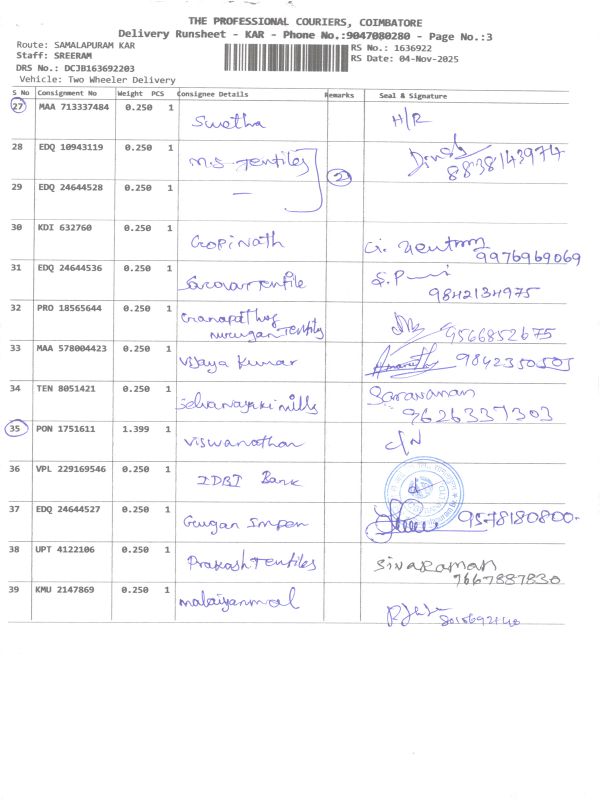 THE PROFESSIONAL COURIERS, COIMBATORE
Delivery Runsheet - KAR - Phone No.:9047080280 - Page No.:3
Route: SAMALAPURAM KAR
RS No.: 1636922
Staff: SREERAM
RS Date: 04-Nov-2025
DRS No.: DCJB163692203
Vehicle: Two Wheeler Delivery
S No Consignment No Weight PCS Consignee Details Remarks Seal & Signature
27 MAA 713337484 0.250 1 Swetha H/R
28 EDQ 10943119 0.250 1 M.S. Textiles 2 8838143974
29 EDQ 24644528 0.250 1 —
30 KDI 632760 0.250 1 Gopinath 9976969069
31 EDQ 24644536 0.250 1 S.P 9842134975
32 PRO 18565644 0.250 1 Ganapathy
Murugan Textiles 9566852675
33 MAA 578004423 0.250 1 Vijaya Kumar 9842350505
34 TEN 8051421 0.250 1 Selvanayaki mills Saravanan
9626337303
35 PON 1751611 1.399 1 Viswanathan C/N
36 VPL 229169546 0.250 1 IDBI Bank
37 EDQ 24644527 0.250 1 Gugan 9578180800
38 UPT 4122106 0.250 1 Prakash Textiles Sivaraman
7667887830
39 KMU 2147869 0.250 1 malaiyammal